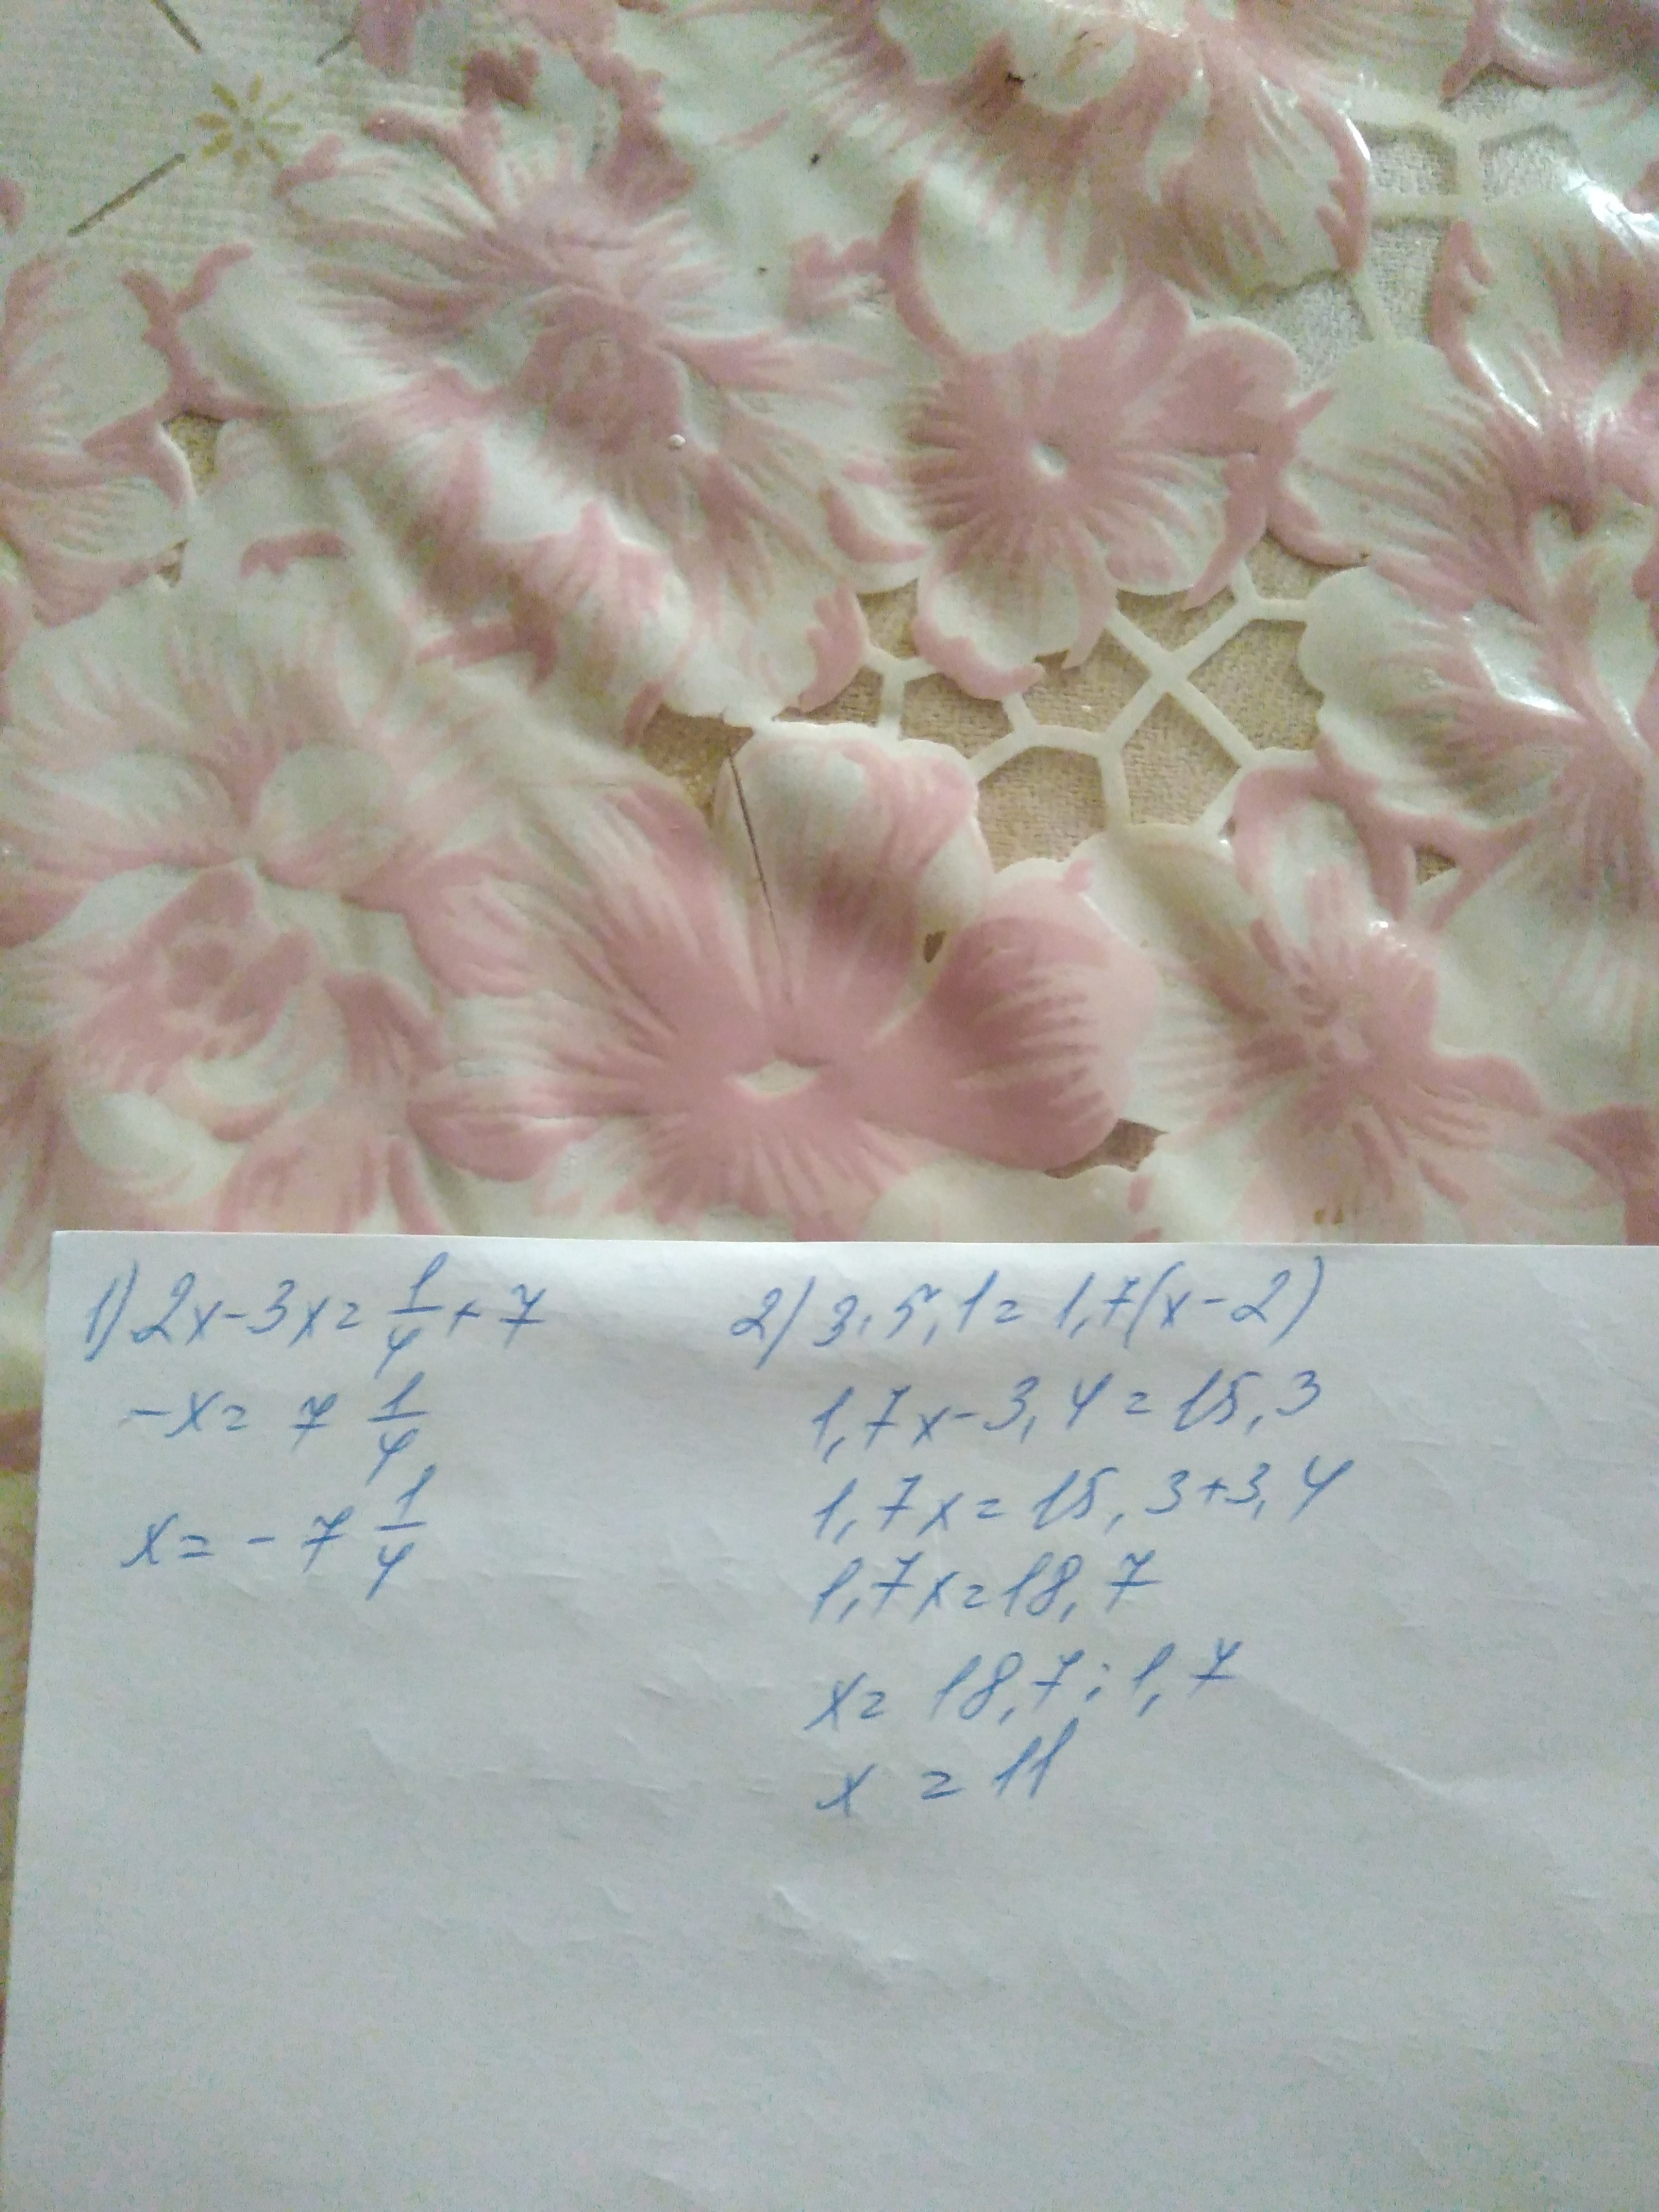 1) 2x-3x= 1/4 + 7
-x= 7 1/4
x= - 7 1/4
2) 3·5,1= 1,7(x-2)
1,7x-3,4=15,3
1,7x=15,3+3,4
1,7x=18,7
x= 18,7:1,7
x = 11